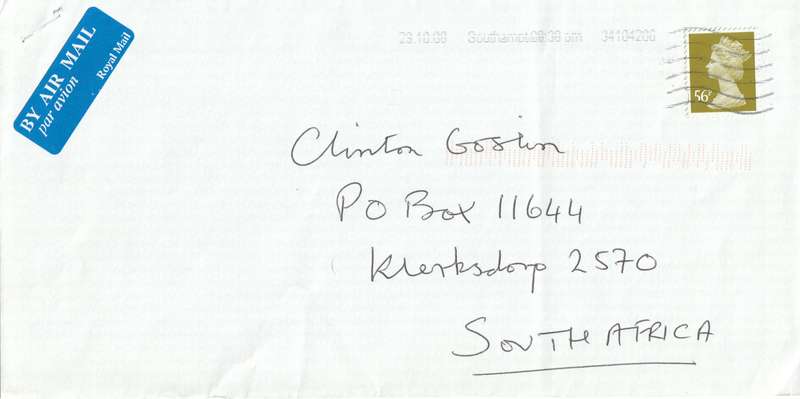 BY AIR MAIL
par avion
Royal Mail
29.10.08 Southampton 08:38 pm 34104206
56P
Clinton Goslin
PO Box 11644
Klerksdorp 2570
SOUTH AFRICA